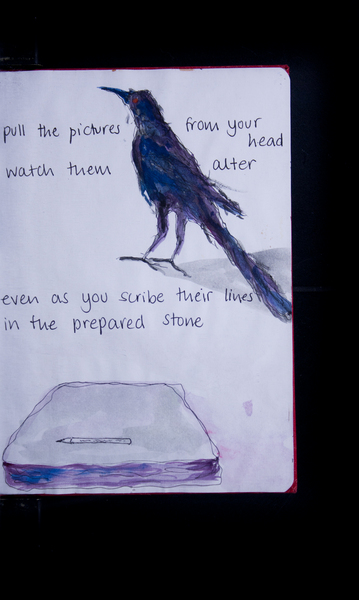 pull the pictures from your head
watch them alter
even as you scribe their lines
in the prepared stone